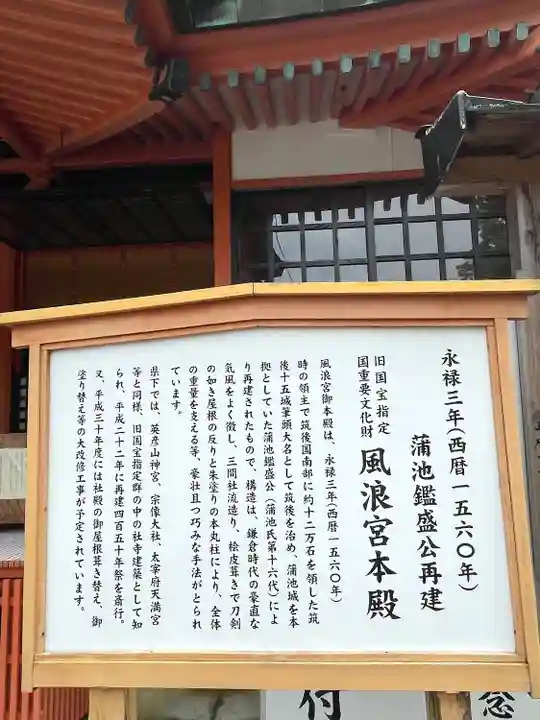 永禄三年（西暦一五六〇年）
蒲池鑑盛公再建
旧国宝指定
国重要文化財
風浪宮本殿
風浪宮御本殿は、永禄三年（西暦一五六〇年）
時の領主で筑後国南部に約十二万石を領した筑
後十五城筆頭大名として筑後を治め、蒲池城を本
拠としていた蒲池鑑盛公（蒲池氏第十六代）によ
り再建されたもので、構造は、鎌倉時代の豪直な
気風をよく徴し、三間社流造り、桧皮葺きで刀剣
の如き屋根の反りと朱塗りの本丸柱により、全体
の重量を支える等、豪壮且つ巧みな手法がとられ
ています。
県下では、英彦山神宮、宗像大社、太宰府天満宮
等と同様、旧国宝指定群の中の社寺建築として知
られ、平成二十二年に再建四百五十年祭を斎行。
又、平成三十年度には社殿の御屋根葺き替え、御
塗り替え等の大改修工事が予定されています。
付
念